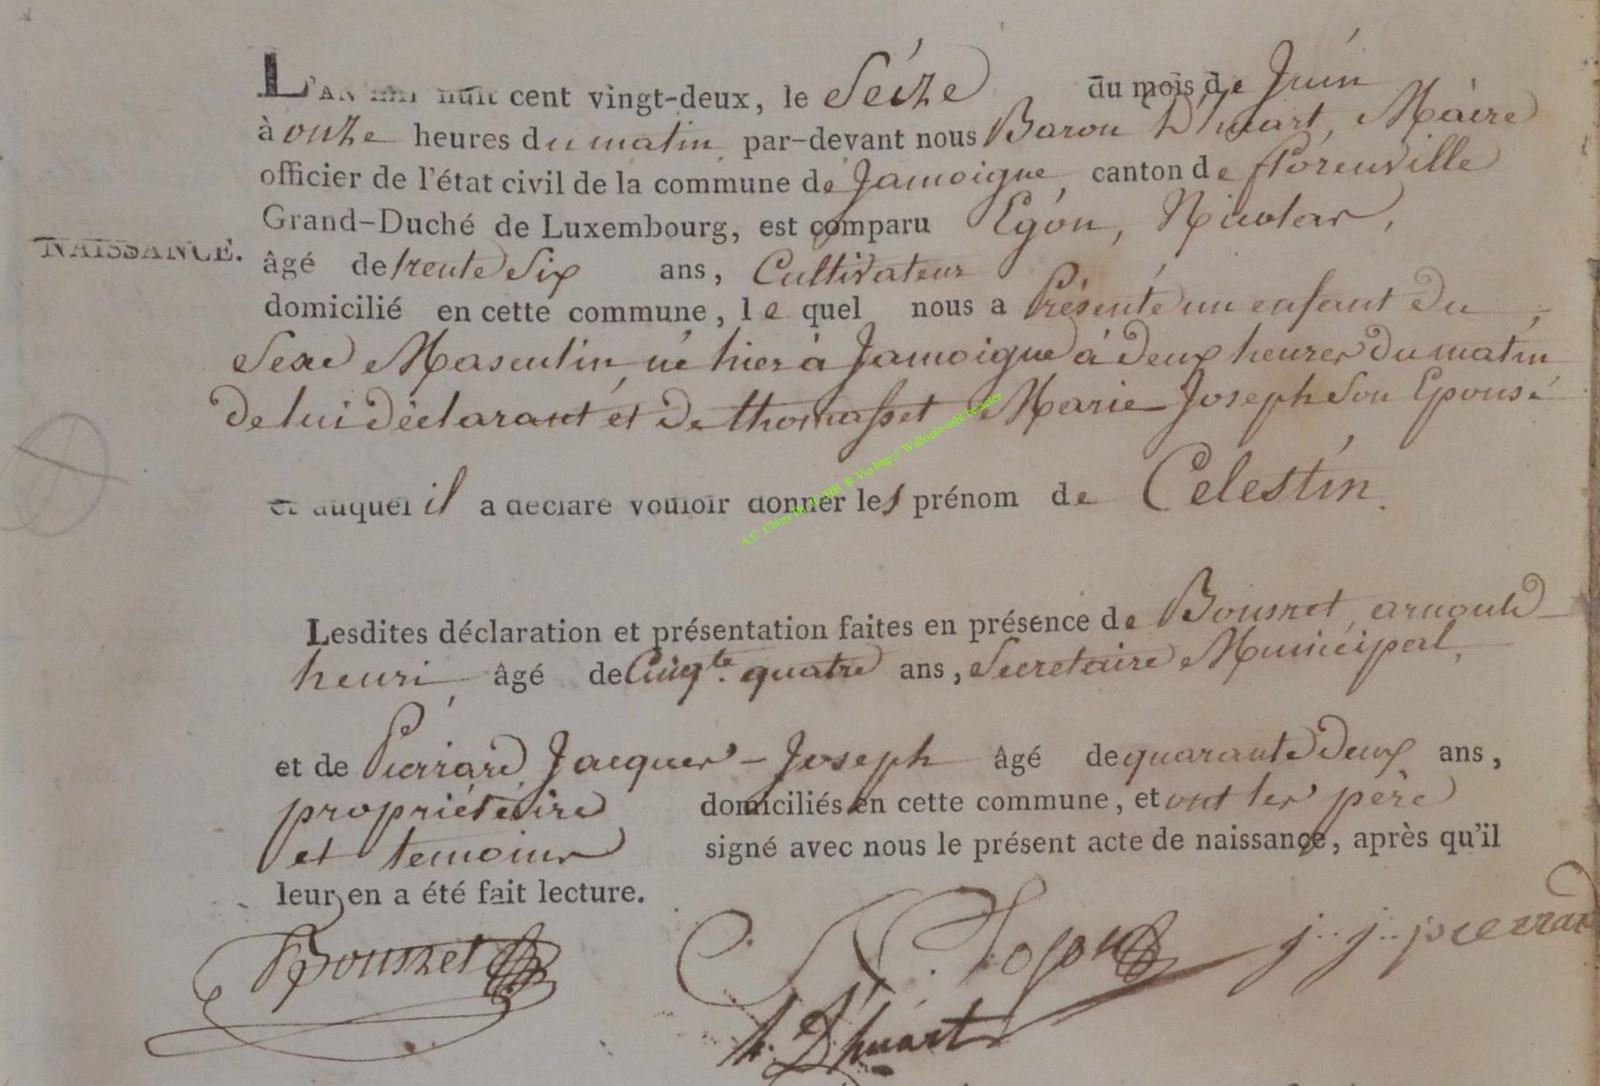 L'AN mil huit cent vingt-deux, le Séize du mois de Juin
à onze heures du matin par-devant nous Baron D'huart, Maire
officier de l'état civil de la commune de Jamoigne, canton de florenville
Grand-Duché de Luxembourg, est comparu Egon, Nicolas,
NAISSANCE. âgé de trente Six ans, Cultivateur
domicilié en cette commune, le quel nous a Présenté un enfant du
Sexe Masculin, né hier à Jamoigne à deux heures du matin
de lui déclarant et de thomasset Marie Joseph Son Epouse
et auquel il a déclaré vouloir donner les prénom de Celestin.
A.C. Chiny HH © Via http:// Wallonia-asbl be/actes
Lesdites déclaration et présentation faites en présence de Bousret, arnould
henri âgé de Cinq.te quatre ans, Secretaire Municipal,
et de Pierrard Jacques - Joseph âgé de quarante deux ans,
propriétaire domiciliés en cette commune, et ont les père
et temoins signé avec nous le présent acte de naissance, après qu'il
leur en a été fait lecture.
Bousret N. Egon j. j. pierrard
h. D'huart